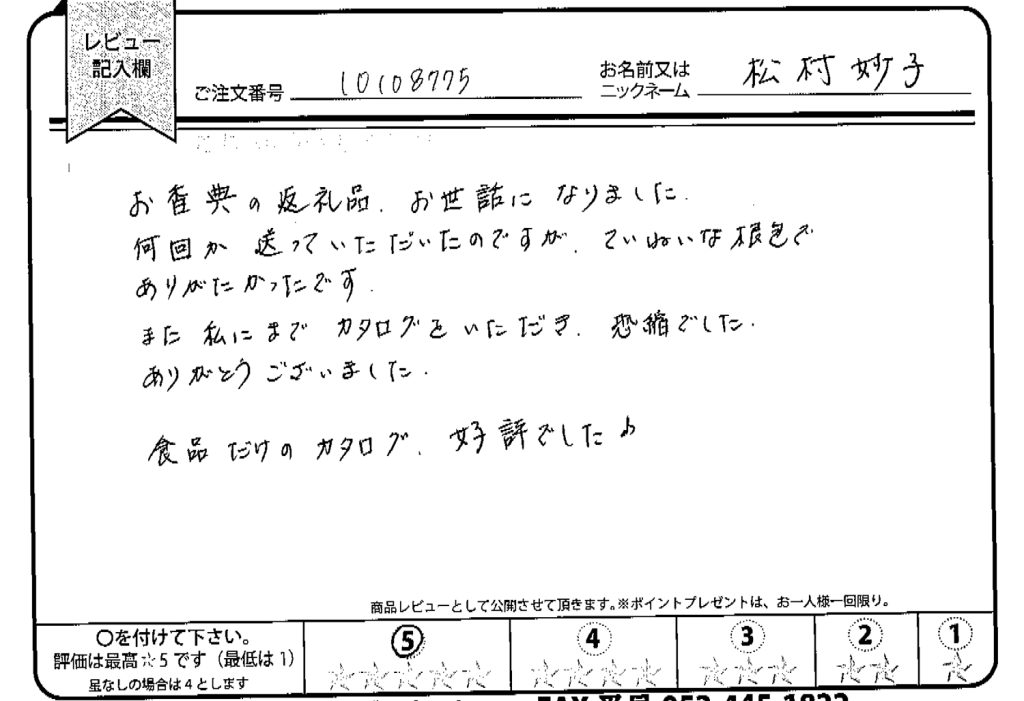 レビュー
記入欄
ご注文番号 10108775
お名前又は
ニックネーム 松村妙子
お香典の返礼品、お世話になりました。
何回か送っていただいたのですが、ていねいな根包で
ありがたかったです。
また私にまでカタログをいただき、恐縮でした。
ありがとうございました。
食品だけのカタログ、好評でした♪
商品レビューとして公開させて頂きます。※ポイントプレゼントは、お一人様一回限り。
〇を付けて下さい。
評価は最高☆5です（最低は1）
星なしの場合は4とします
5 4 3 2 1
☆☆☆☆☆ ☆☆☆☆ ☆☆☆ ☆☆ ☆